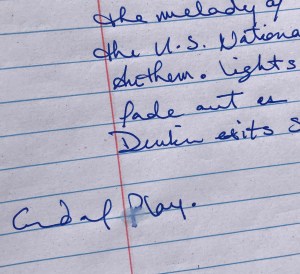 the melody of
the U.S. Nationa
Anthem. Lights
fade out as
exits s
End of Play.